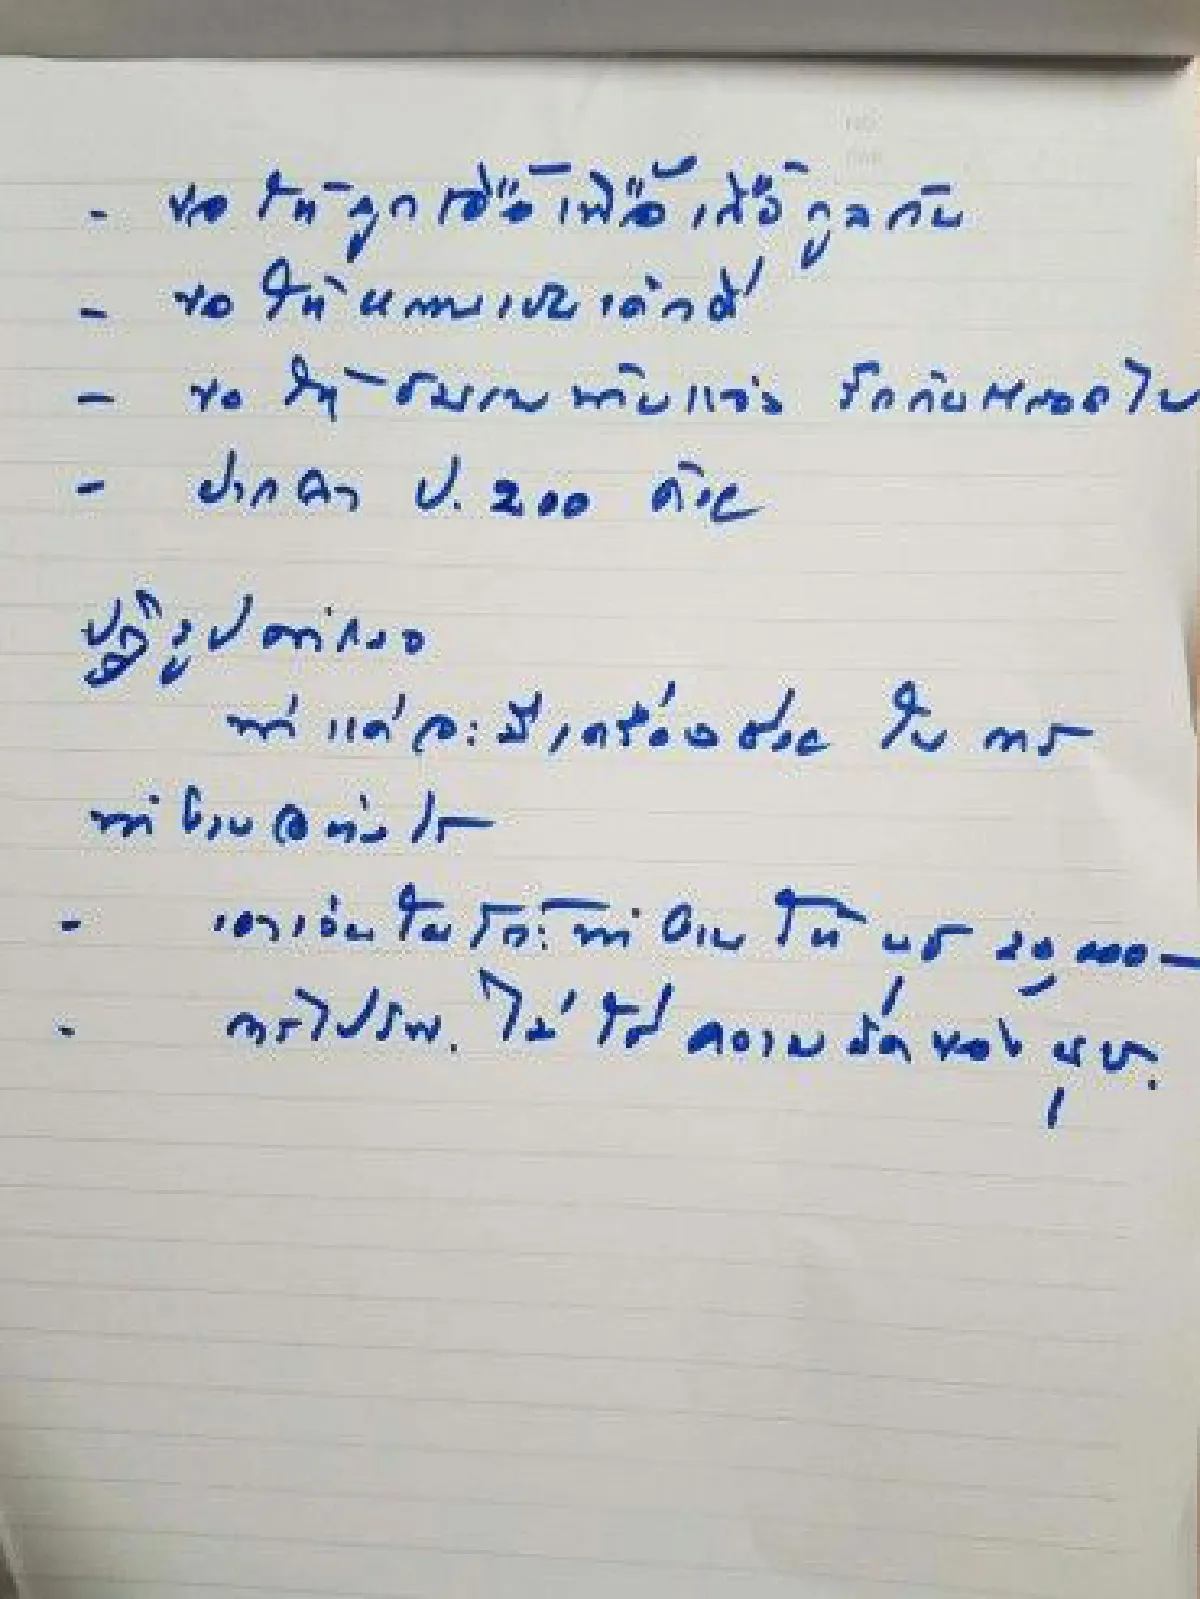 - ขอให้ลูกเอื้อเฟื้อเกื้อกูลกัน
- ขอให้หลานเป็นเด็กดี
- ขอให้ รักกันตลอดไป
- ฝาก ป. 200 ด้วย
ปฏิรูปตำรวจ
ทำแต่จะมีเครื่องช่วย ในการ
ทำงานอย่างไร
- เอาเงินในโต๊ะทำงานให้ นุช 20,000 —
- การไป รพ. ไม่ใช่ความผิดของ นุช.